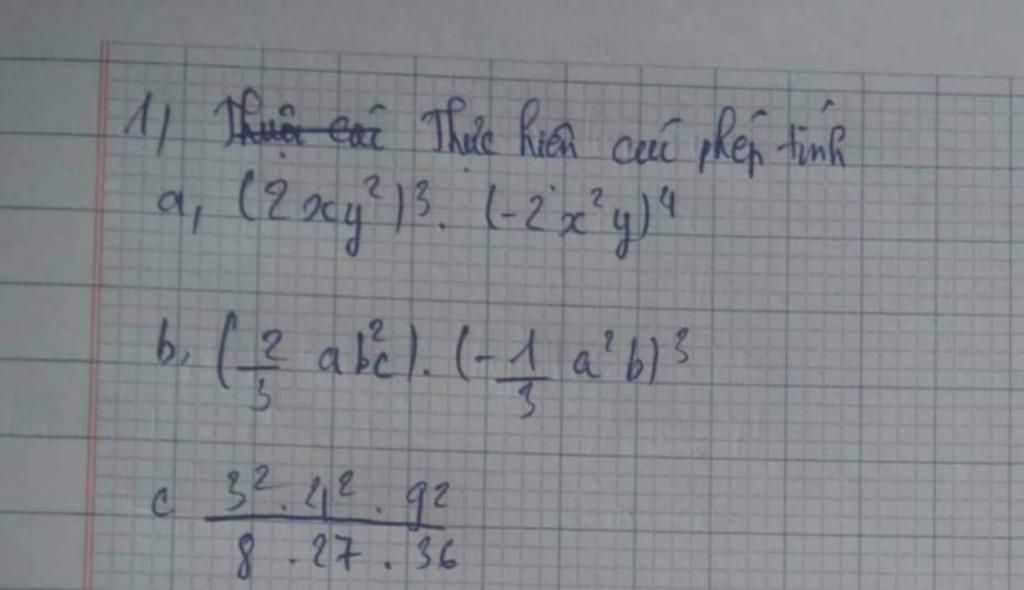 1) Thực hiện các phép tính
a, (2xy²)³. (-2x²y)⁴
b, (2/3 ab²c). (-1/3 a²b)³
c 3². 4². 9² / 8 . 27 . 36